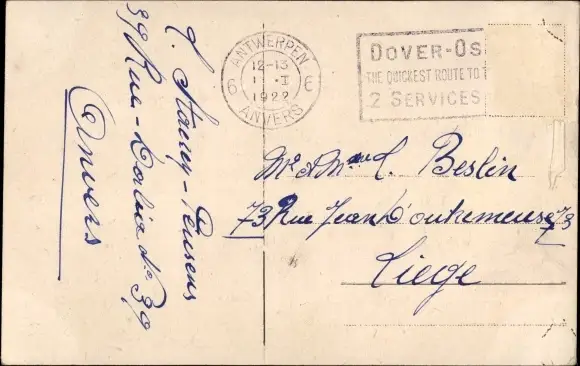 C. Stacey-Peusens
39 Rue-Dodoens 39
Anvers
ANTWERPEN
12-13
6 11·I 6
1922
ANVERS
DOVER-OS
THE QUICKEST ROUTE TO
2 SERVICES
Mr & Mme C. Beslin
73 Rue Jean D'outremeuse 73
Liege